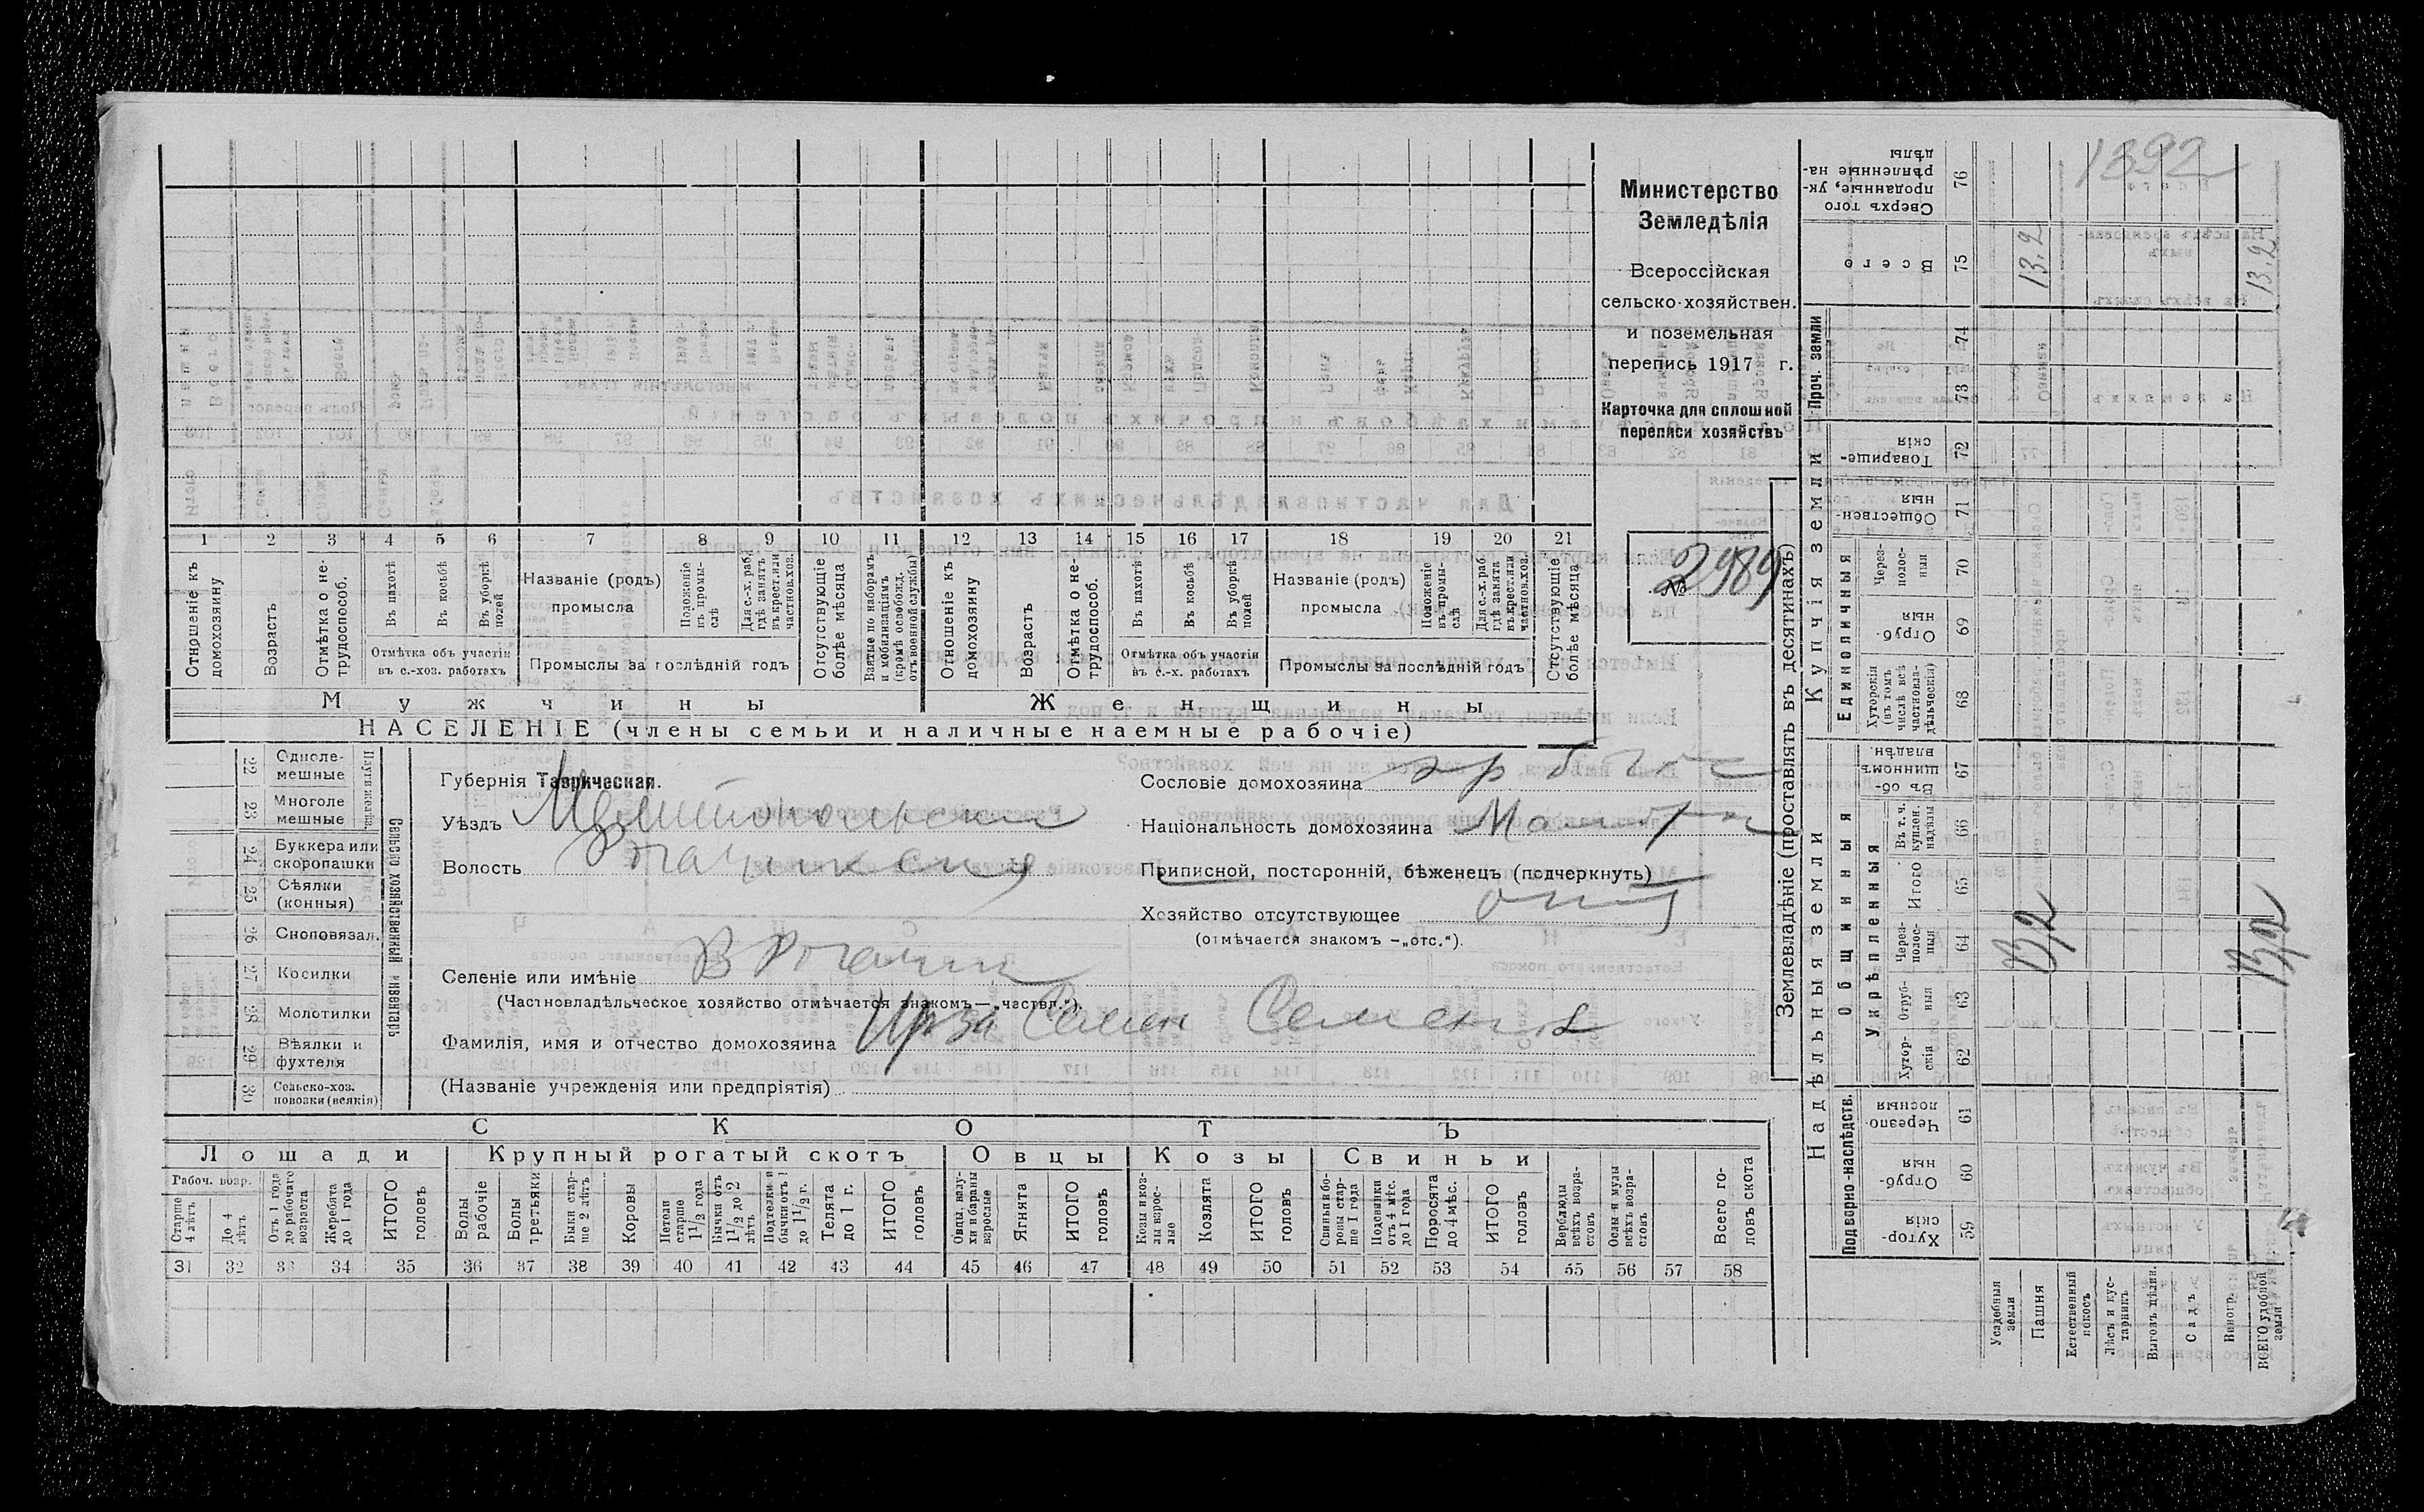 1392
Министерство
Земледѣлія
Всероссійская
сельско-хозяйствен.
и поземельная
перепись 1917 г.
Карточка для сплошной
переписи хозяйствъ
№ 2989
1 2 3 4 5 6 7 8 9 10 11 12 13 14 15 16 17 18 19 20 21
Отношеніе къ домохозяину
Возрастъ
Отмѣтка о не-трудоспособ.
Въ пахотѣ
Въ косьбѣ
Въ уборкѣ полей
Отмѣтка объ участіи
въ с.-хоз. работахъ
Названіе (родъ)
промысла
Положеніе въ промы-слѣ
Для с.-х. раб. гдѣ занятъ въ крест. или частнов. хоз.
Промыслы за послѣдній годъ
Отсутствующіе болѣе мѣсяца
Взятые по наборамъ и мобилизаціямъ (кромѣ освобожд. отъ военной службы)
Отношеніе къ домохозяину
Возрастъ
Отмѣтка о не-трудоспособ.
Въ пахотѣ
Въ косьбѣ
Въ уборкѣ полей
Отмѣтка объ участіи
въ с.-х. работахъ
Названіе (родъ)
промысла
Положеніе въ промы-слѣ
Для с.-х. раб. гдѣ занята въ крест. или частнов. хоз.
Промыслы за послѣдній годъ
Отсутствующіе болѣе мѣсяца
Мужчины Женщины
НАСЕЛЕНІЕ (члены семьи и наличные наемные рабочіе)
22 Одноле-мешные
23 Многоле мешные
Плуги желѣзн.
24 Буккера или скоропашки
25 Сѣялки (конныя)
26 Сноповязал.
27 Косилки
28 Молотилки
29 Вѣялки и фухтеля
30 Сельско-хоз. повозки (всякія)
Сельско хозяйственный инвентарь
Губернія Таврическая.
Уѣздъ Мелитопольский
Волость
Селеніе или имѣніе В Рогачик
(Частновладѣльческое хозяйство отмѣчается знакомъ—„частвл.“).
Фамилія, имя и отчество домохозяина Ирза Семен Семенов
(Названіе учрежденія или предпріятія)
Сословіе домохозяина
Національность домохозяина
Приписной, посторонній, бѣженецъ (подчеркнуть)
Хозяйство отсутствующее
(отмѣчается знакомъ —„отс.“).
СКОТЪ
Лошади Крупный рогатый скотъ Овцы Козы Свиньи
Рабоч. возр.
Старше 4 лѣтъ
До 4 лѣтъ
Отъ 1 года до рабочаго возраста
Жеребята до 1 года
ИТОГО головъ
Волы рабочіе
Волы третьяки
Быки стар-ше 2 лѣтъ
Коровы
Нетели старше 1½ года
Бычки отъ 1½ до 2 лѣтъ
Подтелки и бычки отъ 1 до 1½ г.
Телята до 1 г.
ИТОГО головъ
Овцы, валу-хи и бараны взрослые
Ягнята
ИТОГО головъ
Козы и коз-лы взрос-лые
Козлята
ИТОГО головъ
Свиньи и бо-ровы стар-ше 1 года
Подсвинки отъ 4 мѣс. до 1 года
Поросята до 4 мѣс.
ИТОГО головъ
Верблюды всѣхъ возра-стовъ
Ослы и мулы всѣхъ возра-стовъ
Всего го-ловъ скота
31 32 33 34 35 36 37 38 39 40 41 42 43 44 45 46 47 48 49 50 51 52 53 54 55 56 57 58
Землевладѣніе (проставлять въ десятинахъ)
Надѣльныя земли
Купчія земли
Проч. земли
Подворно-наслѣдств.
Общинныя
Укрѣпленныя
Единоличныя
Хутор-скія 59
Отруб-ныя 60
Черезпо-лосныя 61
Хутор-скія 62
Отруб-ныя 63
Через-полос-ныя 64
Итого 65
Въ т. ч. куплен. надѣлы 66
Въ об-щинномъ владѣн. 67
Хуторскія (въ томъ числѣ всѣ частновла-дѣльческія) 68
Отруб-ныя 69
Через-полос-ныя 70
Обществен-ныя 71
Товарище-скія 72
73
74
Всего 75
Сверхъ того проданные, ук-рѣпленные на-дѣлы 76
Усадебныя земли
Пашня
Естественный покосъ
Лѣсъ и кус-тарникъ
Выгонъ цѣлин.
Садъ
Виногр.
ВСЕГО удобной земли
13.2
13.2